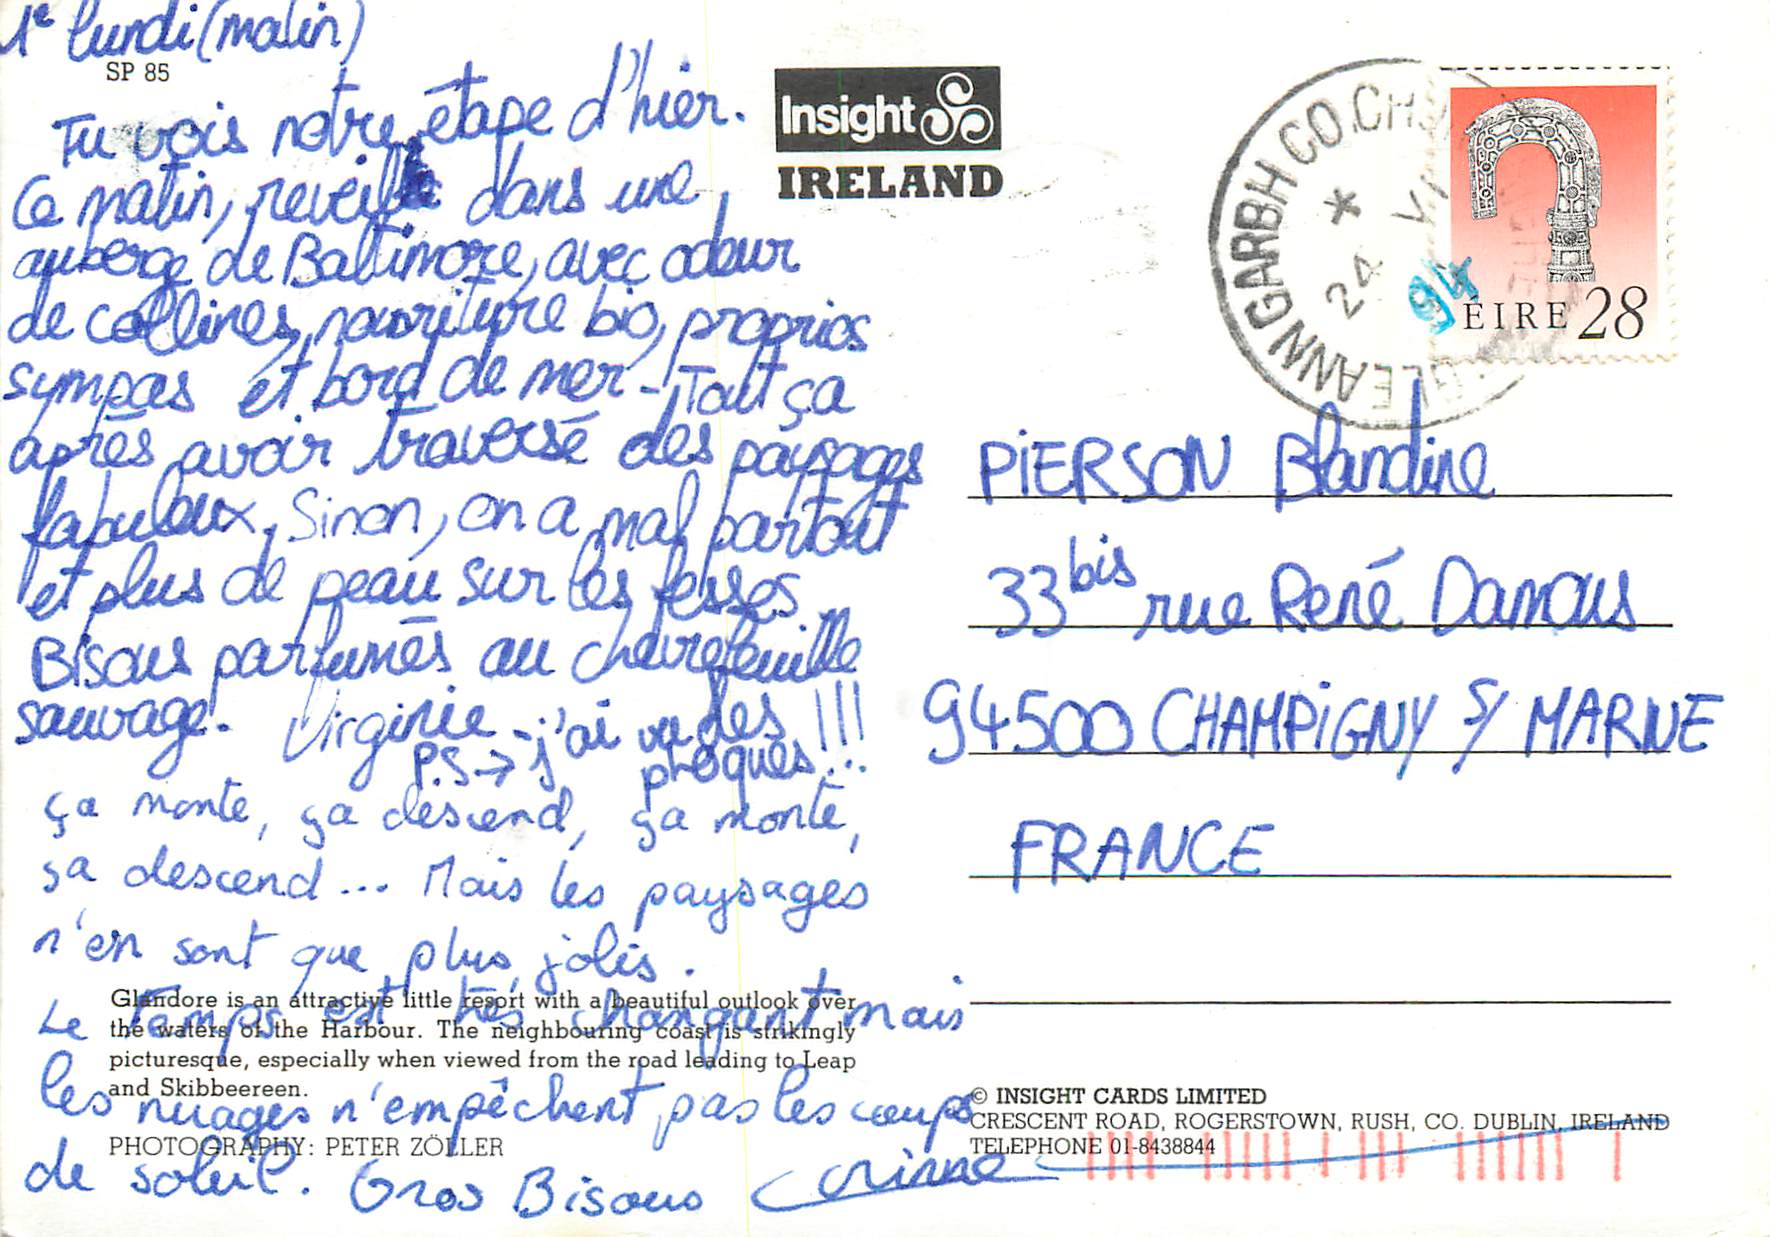 1e lundi (matin)
SP 85
Tu vois notre étape d'hier.
Ce matin, reveil dans une
auberge de Baltimore, avec odeur
de collines, nourriture bio, proprios
sympas et bord de mer - Tout ça
après avoir traversé des paysages
fabuleux, Sinon, on a mal partout
et plus de peau sur les fesses
Bisous parfumés au chevrefeuille
sauvage. Virginie
P.S → j'ai vu des
phoques !!!
ça monte, ça descend, ça monte,
ça descend... Mais les paysages
n'en sont que plus jolis.
Le temps est très changeant mais
les nuages n'empêchent pas les coups
de soleil. Gros Bisous Corinne
Glandore is an attractive little resort with a beautiful outlook over
the waters of the Harbour. The neighbouring coast is strikingly
picturesque, especially when viewed from the road leading to Leap
and Skibbereen.
PHOTOGRAPHY: PETER ZÖLLER
Insight
IRELAND
GLEANN GARBH CO. CH
24 VI
94
ÉIRE 28
PIERSON Blandine
33 bis rue René Damous
94500 CHAMPIGNY S/ MARNE
FRANCE
© INSIGHT CARDS LIMITED
CRESCENT ROAD, ROGERSTOWN, RUSH, CO. DUBLIN, IRELAND
TELEPHONE 01-8438844